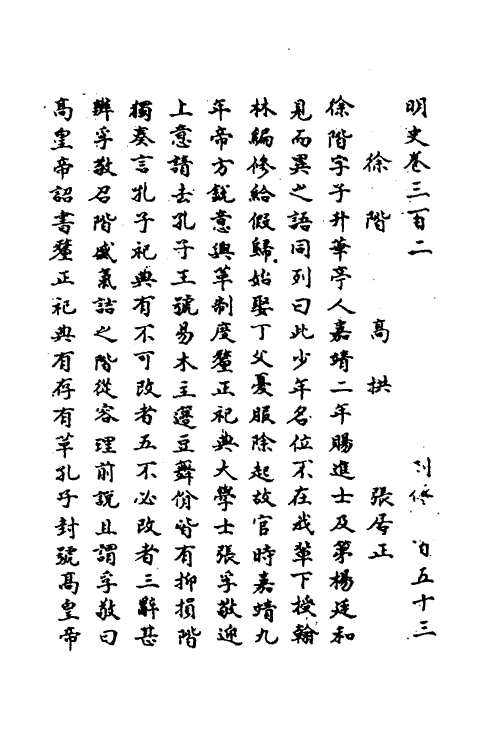 明史卷三百二　列傳一百五十三
徐階　高拱　張居正
徐階字子升華亭人嘉靖二年賜進士及第楊廷和
見而異之語同列曰此少年名位不在我輩下授翰
林編修給假歸始娶丁父憂服除起故官時嘉靖九
年帝方銳意興革制度釐正祀典大學士張孚敬迎
上意請去孔子王號易木主籩豆舞佾皆有抑損階
獨奏言孔子祀典有不可改者五不必改者三辭甚
辨孚敬召階盛氣詰之階從容理前說且謂孚敬曰
高皇帝詔書釐正祀典有存有革孔子封號高皇帝